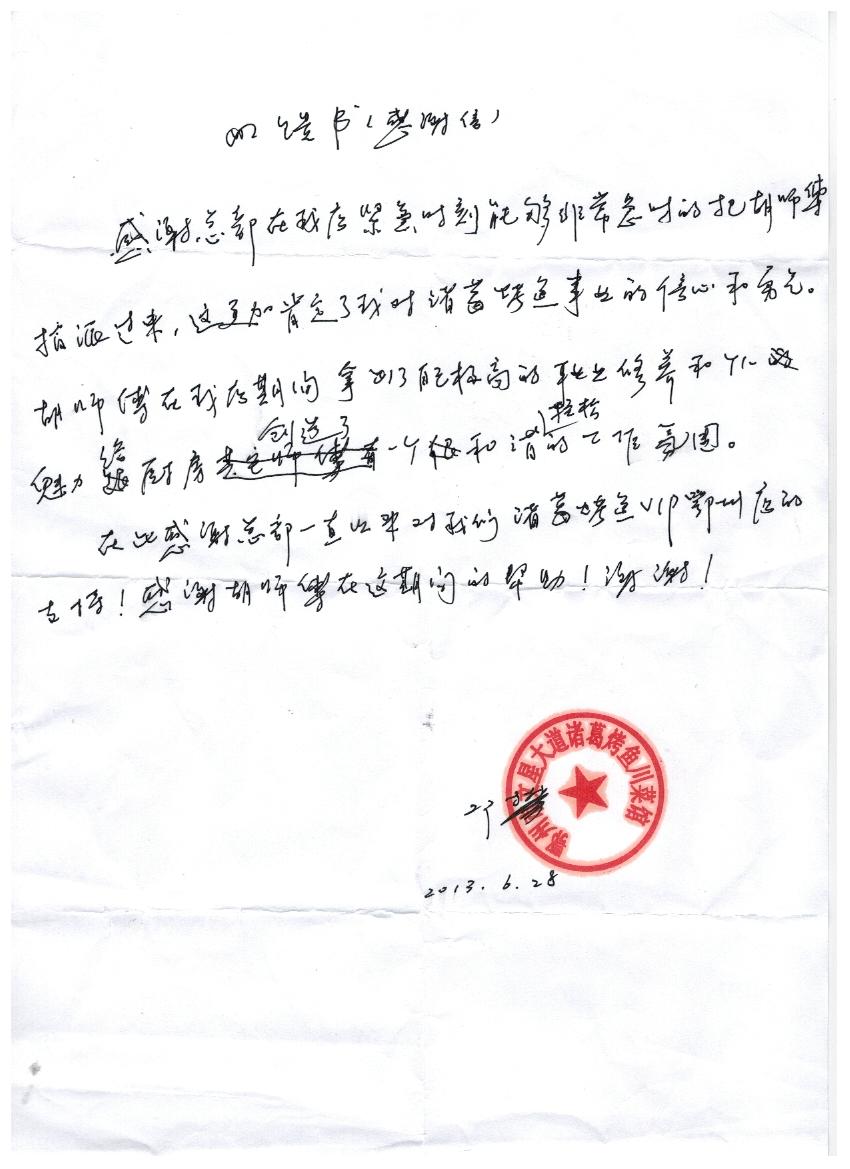 回馈书（感谢信）
感谢总部在我店紧急时刻能够非常急时的把胡师傅
指派过来，这更加肯定了我对诸葛烤鱼事业的信心和勇气。
胡师傅在我店期间拿出了自己极高的职业修养和个人
创造了 轻松
魅力给厨房一个和谐的工作氛围。
在此感谢总部一直以来对我们诸葛烤鱼VIP鄂州店的
支持！感谢胡师傅在这期间的帮助！谢谢！
鄂州 星大道诸葛烤鱼川菜馆
2013.6.28